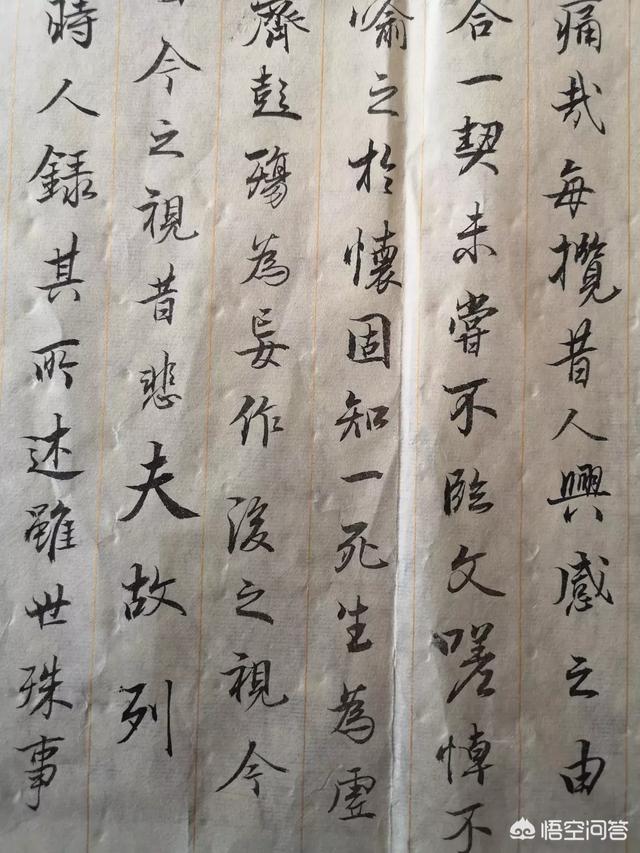 痛哉每攬昔人興感之由
合一契未嘗不臨文嗟悼不
喻之於懷固知一死生為虛
齊彭殤為妄作後之視今
今之視昔悲夫故列
時人錄其所述雖世殊事
悟空问答